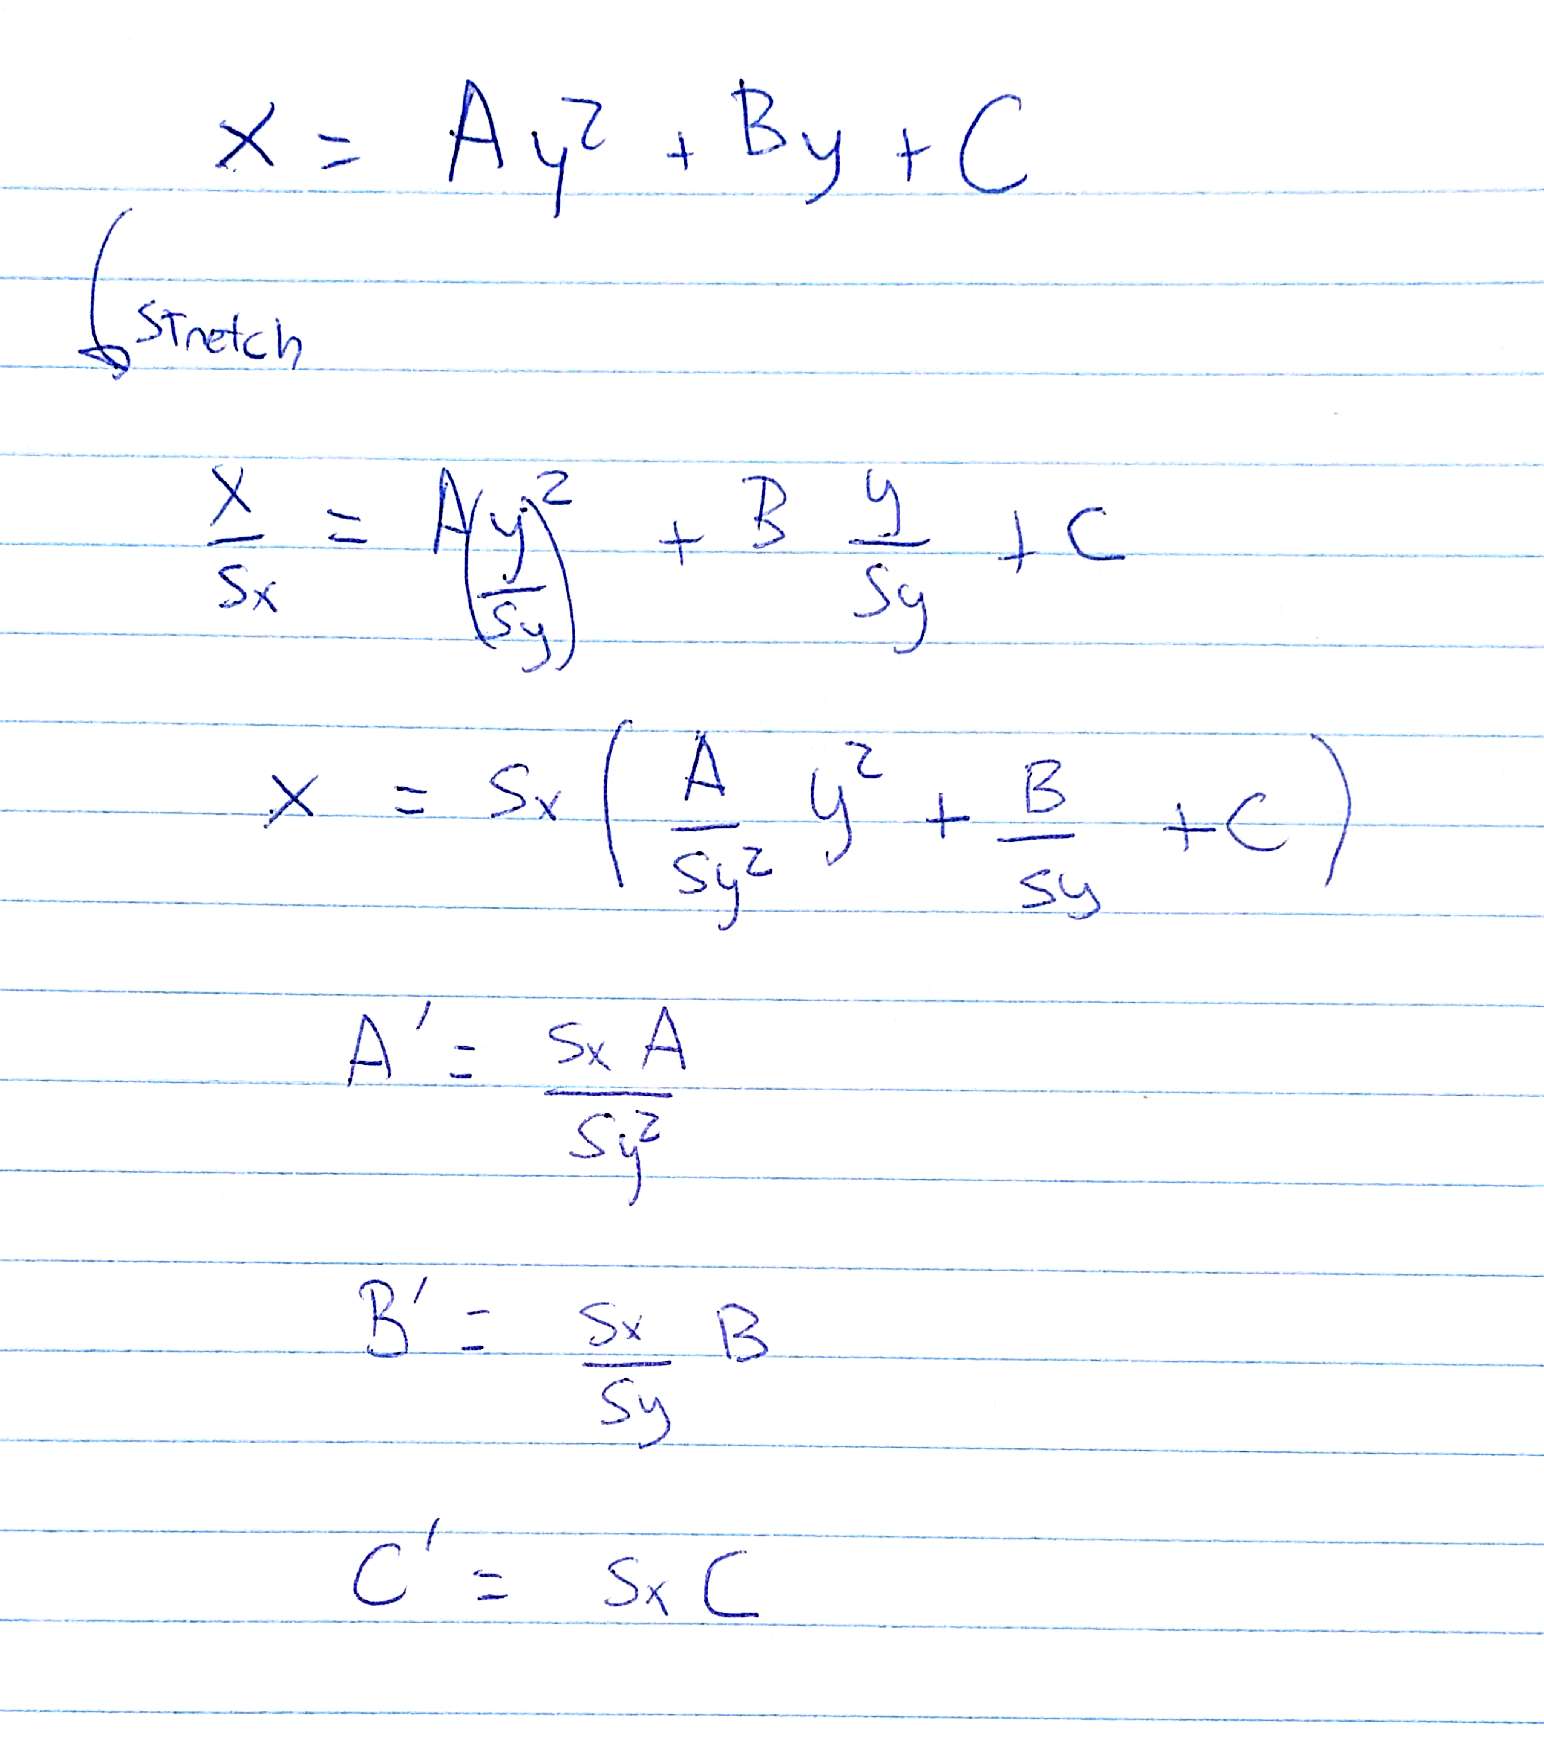 x = Ay² + By + C
Stretch
x/Sx = A(y/Sy)² + B y/Sy + C
x = Sx(A/Sy² y² + B/Sy + C)
A' = SxA/Sy²
B' = Sx/Sy B
C' = SxC